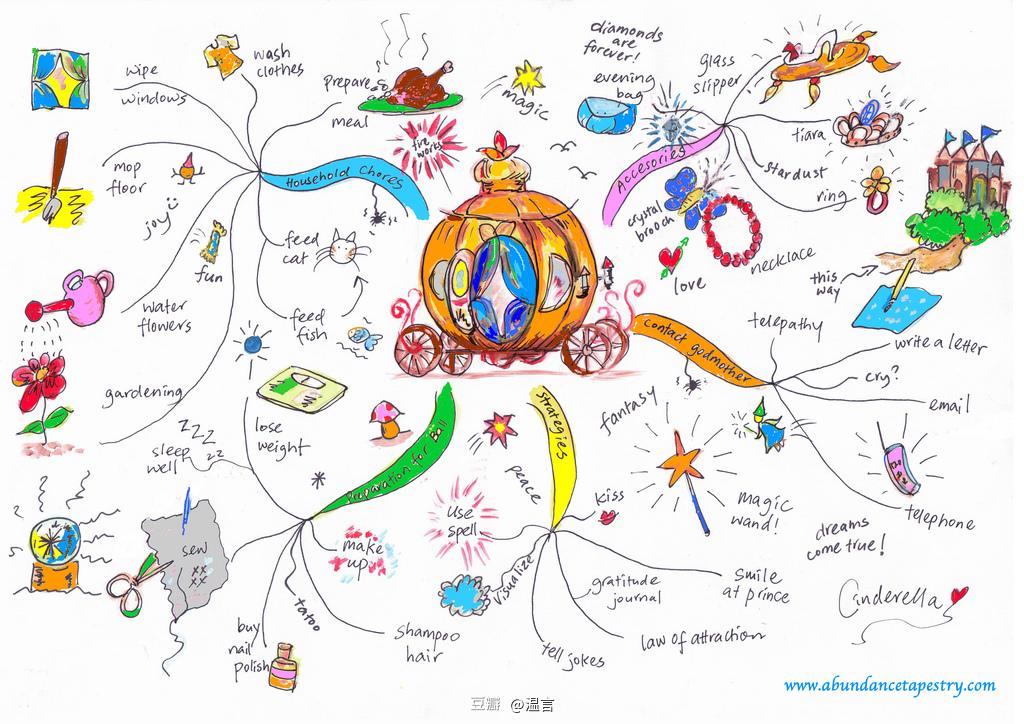 wipe
windows
wash
clothes
prepare
meal
magic
fire
works
mop
floor
Household Chores
joy
fun
feed
cat
feed
fish
water
flowers
gardening
diamonds
are
forever!
evening
bag
glass
slipper
Accesories
tiara
stardust
ring
crystal
brooch
necklace
love
this
way
contact godmother
telepathy
write a letter
cry?
email
telephone
fantasy
magic
wand!
dreams
come true!
zzz
zz
sleep
well
lose
weight
Preparation for Ball
sew
xx
xx
make
up
tatoo
buy
nail
polish
shampoo
hair
Strategies
peace
use
spell
kiss
visualize
gratitude
journal
smile
at prince
law of attraction
tell jokes
Cinderella
www.abundancetapestry.com
豆瓣 @温言